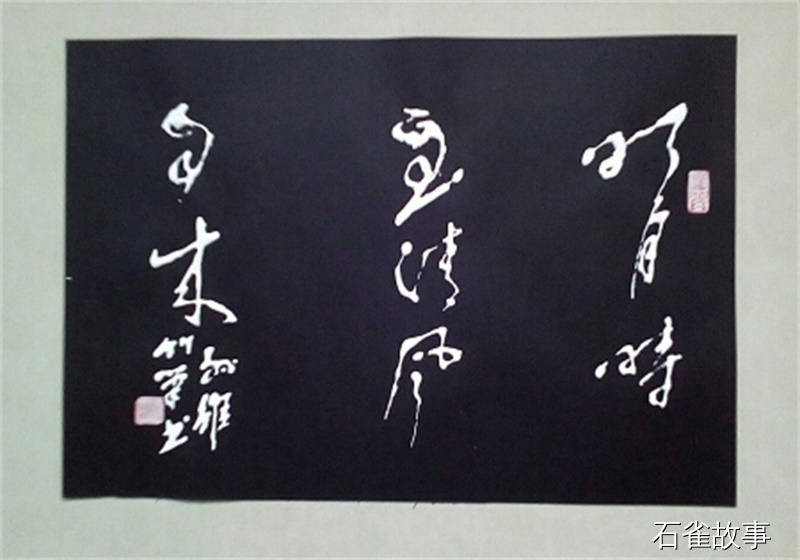 明月時
至清風
自来
竹筆书
石雀故事